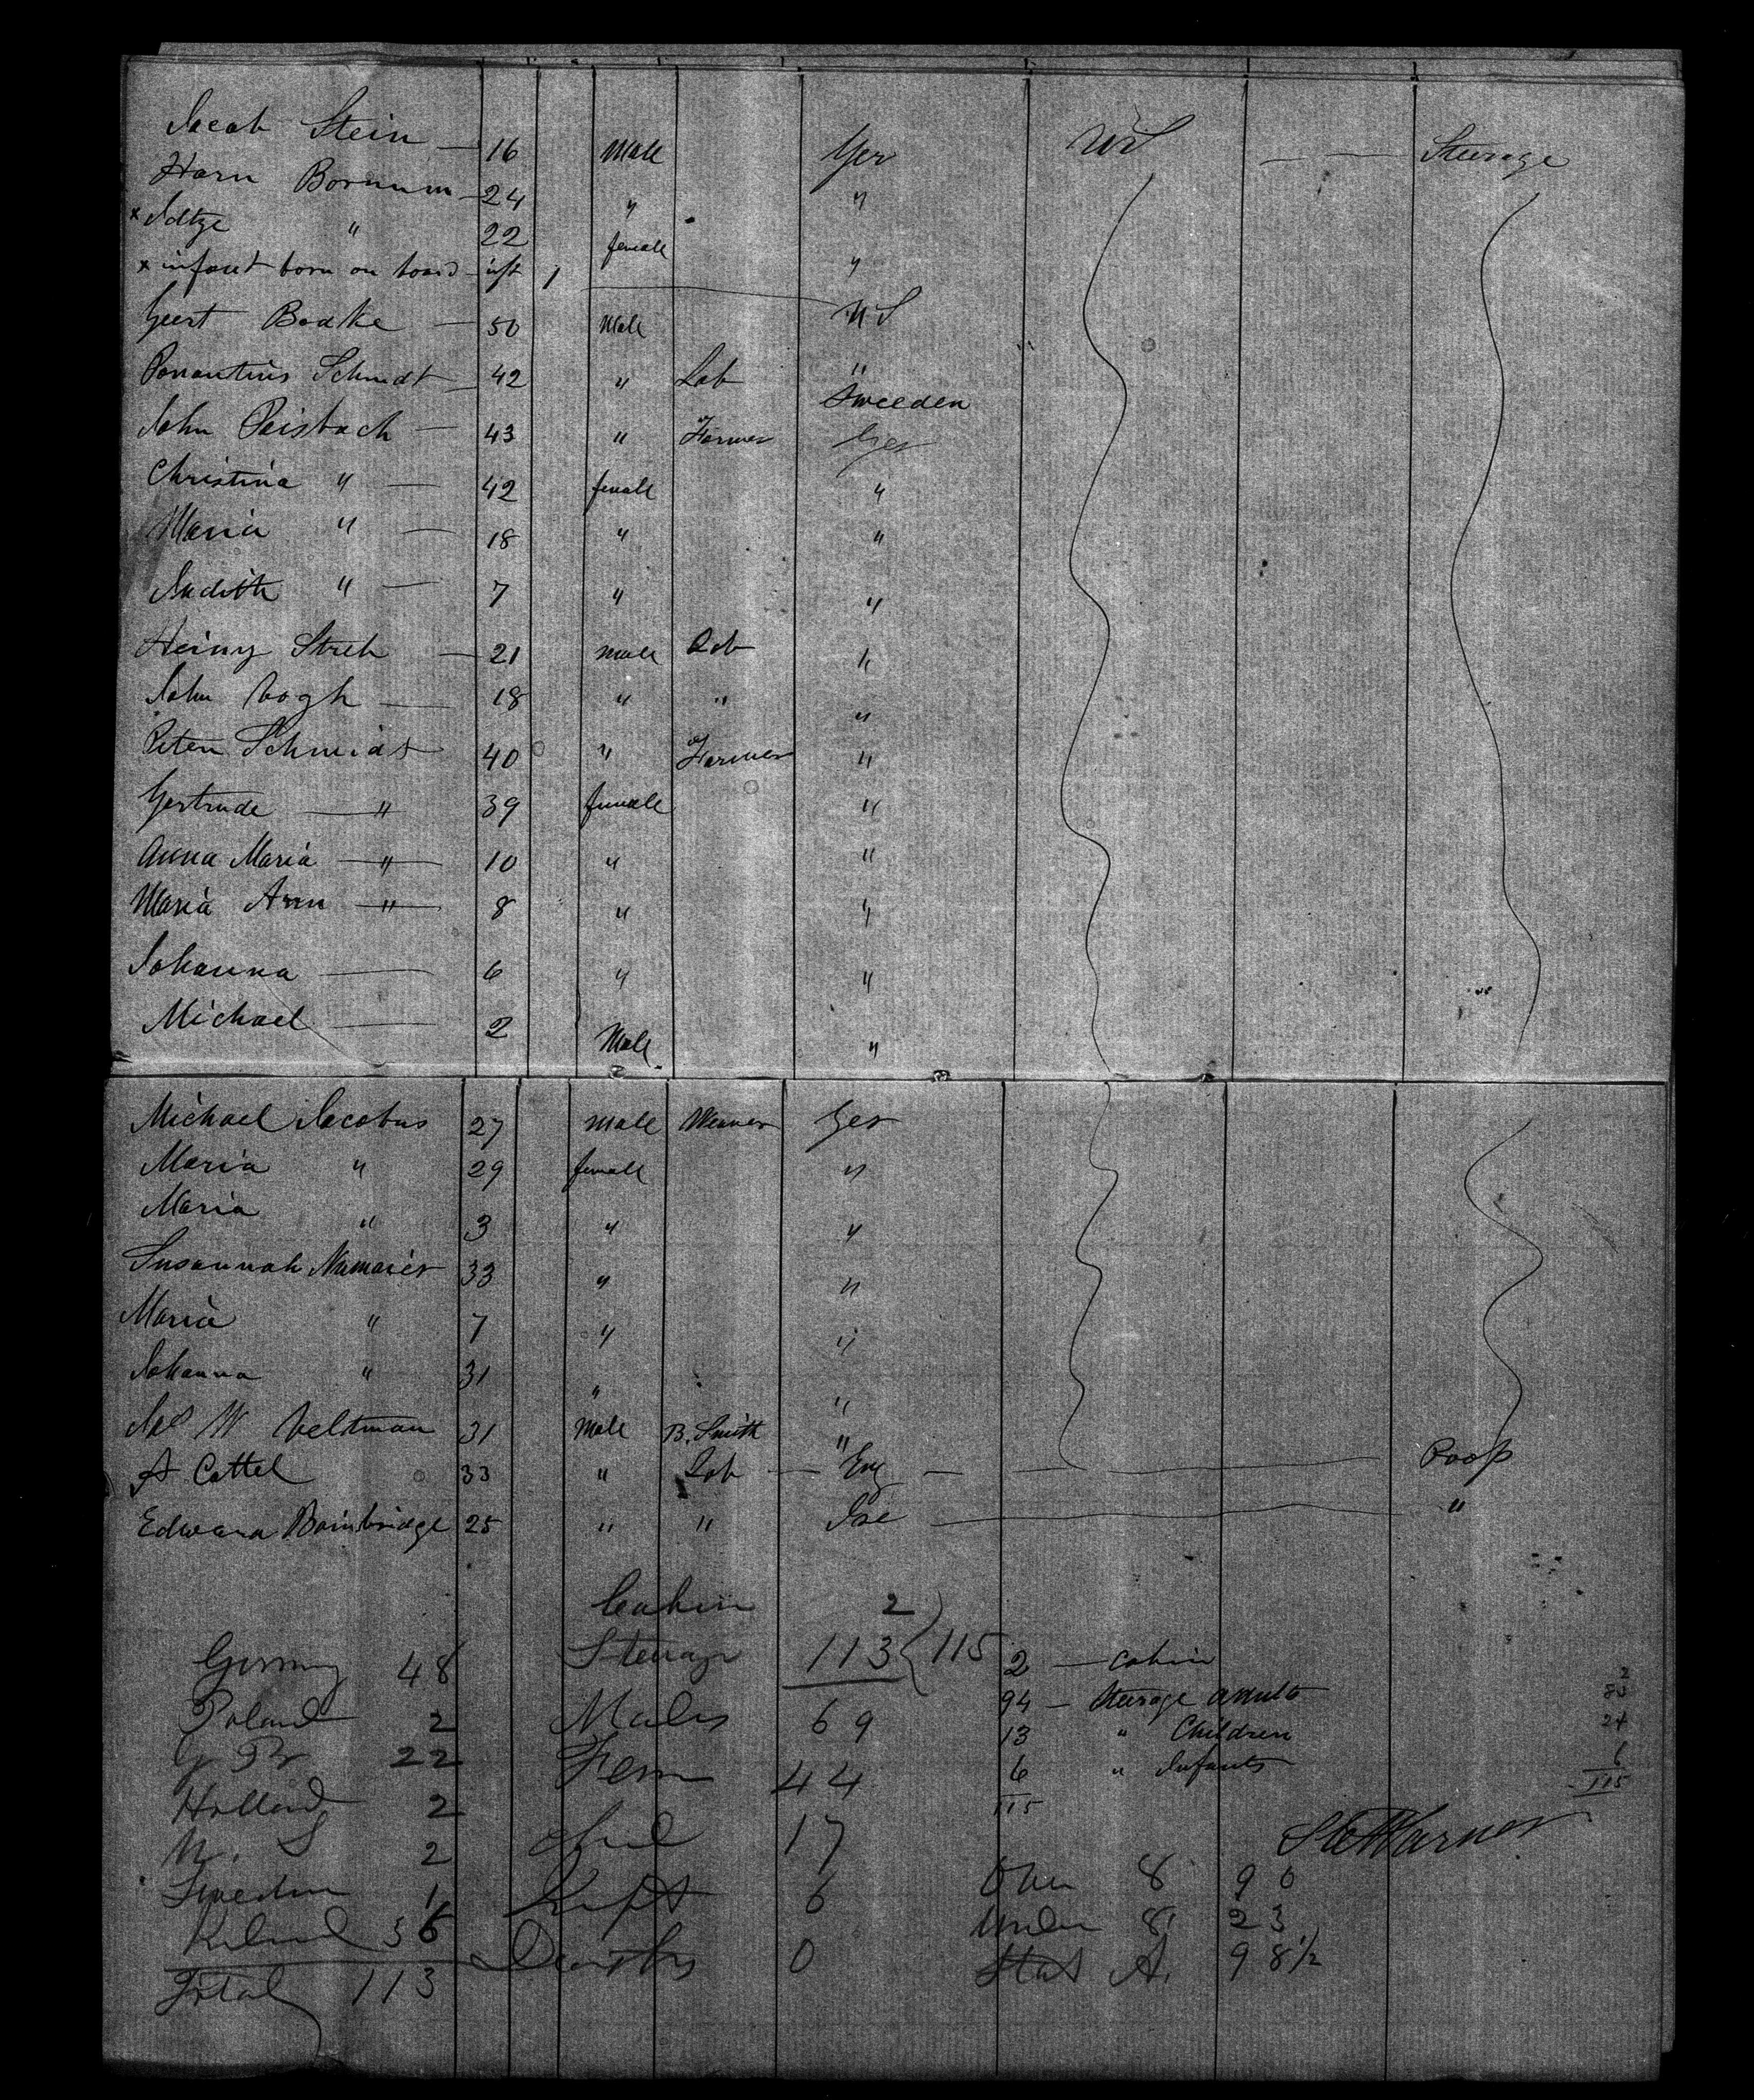 Jacob Stein — 16 Male Ger US — — Steerage
Harn Bornum — 24 " "
x Idtze " 22 female "
x infant born on board — inft 1 — US
Geert Bodke — 50 Male "
Schmidt — 42 " Lab Sweeden
John Reisbach — 43 " Farmer Ger
Christina " — 42 female "
Maria " — 18 " "
Judith " — 7 " "
Heiny Streh — 21 male Lab "
John Vogh — 18 " " "
Peter Schmidt 40 " Farmer "
Gertrude — " 39 female "
Anna Maria — " — 10 " "
Maria Ann — " — 8 " "
Johanna — 6 " "
Michael — 2 Male "
Michael Jacobus 27 male Weaver Ger
Maria " 29 female "
Maria " 3 " "
Susannah 33 " "
Maria " 7 " "
Johanna " 31 " "
W Veltman 31 Male B. Smith "
A Cottel 33 " Lab — Eng — — Poop
Edward Bainbridge 25 " " Ire — "
Cabin 2
Steerage 113 115
Germny 48
Poland 2
G Br 22
Holland 2
U. S 2
Sweden 1
Ireland 36
Total 113
Males 69
Fem 44
Chil 17
Inft 6
Deaths 0
2 — Cabin
94 — Steerage adults
13 " Children
6 " Infants
115
2
83
24
6
115
Over 8 90
Under 8 23
Stat A. 98½